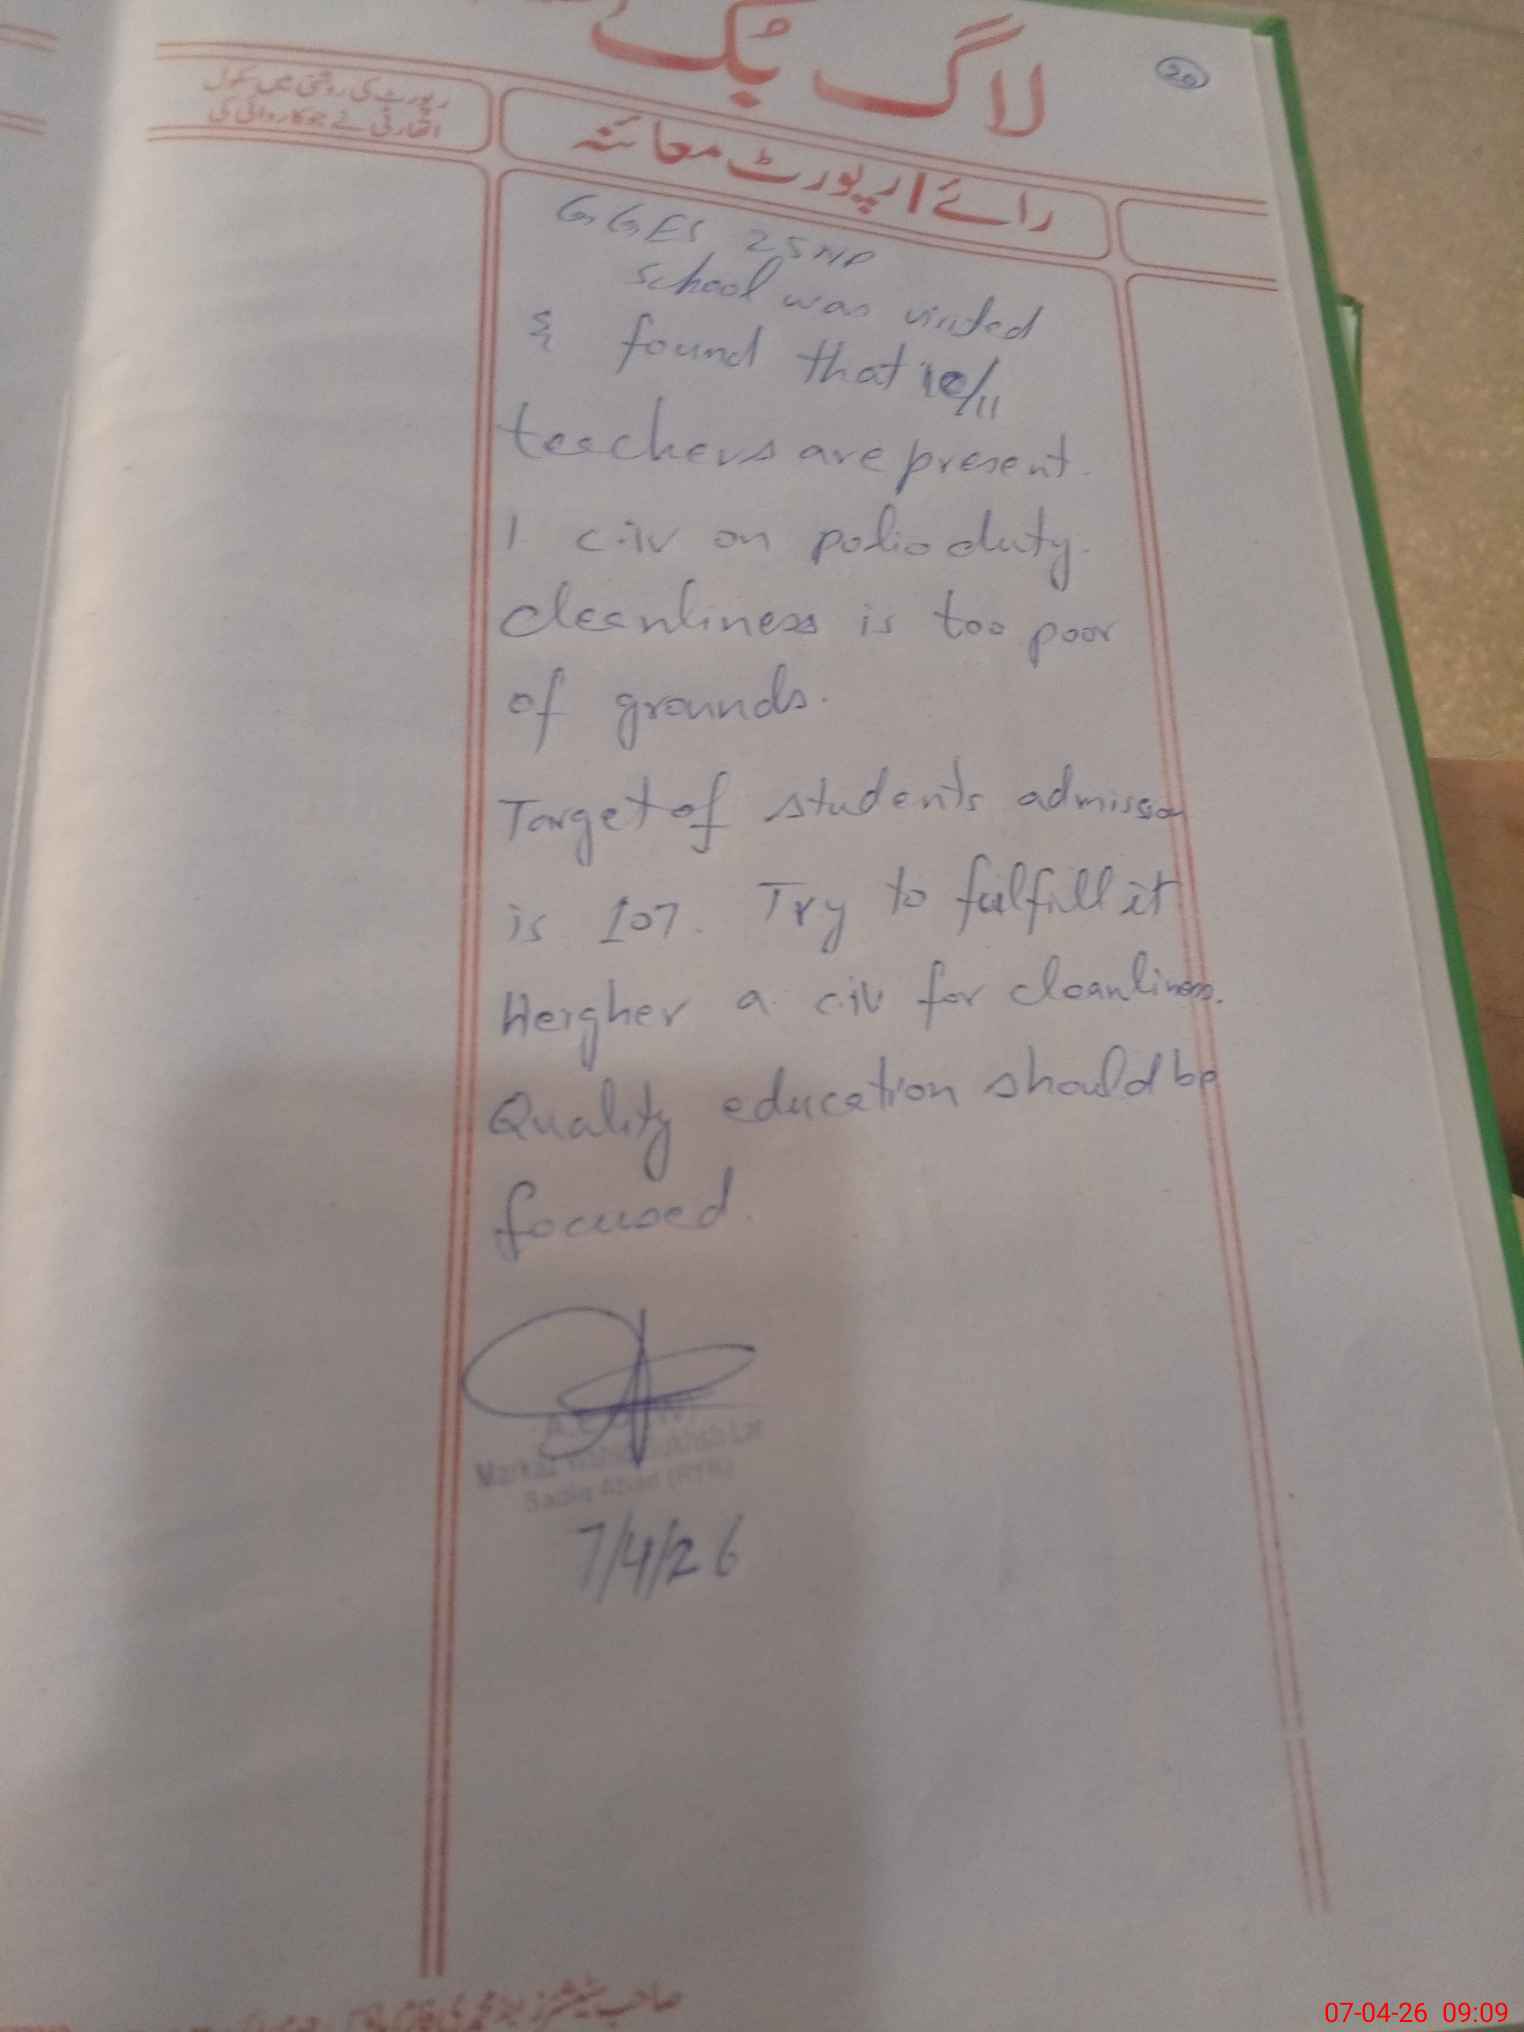 لاگ بک
20
رپورٹ کی روشنی میں سکول
اتھارٹی نے جو کاروائی کی
رائے / رپورٹ معائنہ
GGES 25NP
school was visited
& found that 10/11
teachers are present.
1 c.iv on polio duty.
cleanliness is too poor
of grounds.
Target of students admission
is 107. Try to fulfill it
Heigher a c.iv for cleanliness.
Quality education should be
focused.
Markaz
Sadiq Abad (RYK)
7/4/26
07-04-26 09:09